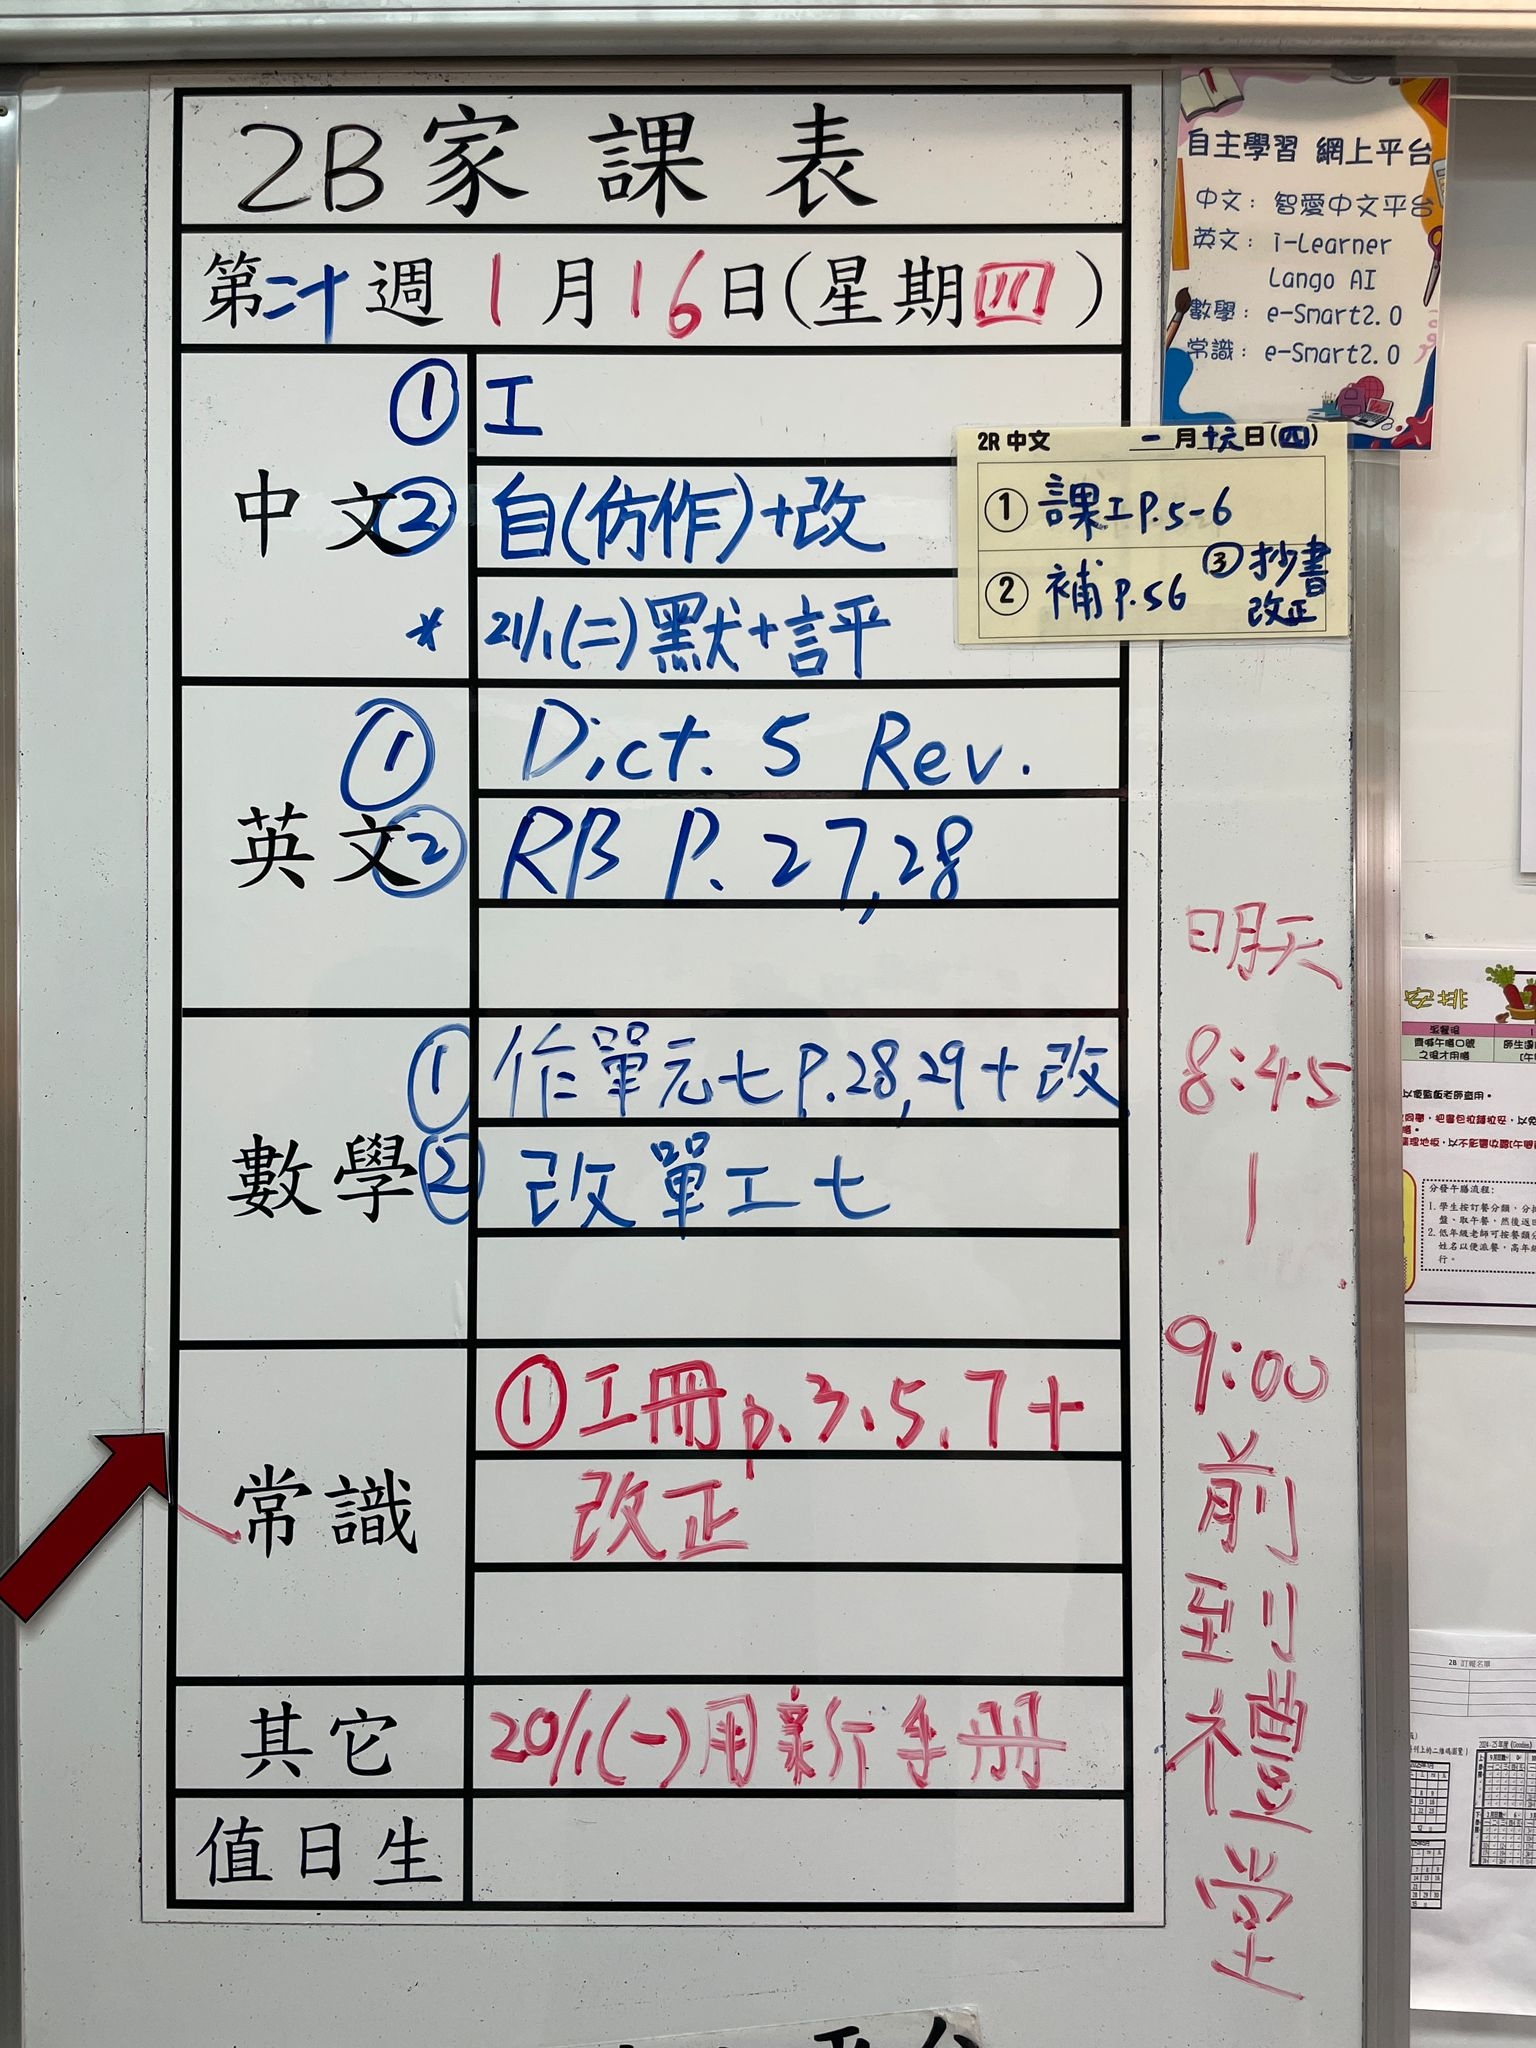 2B家課表
第二十週 1月16日(星期四)
中文
① 工
② 自(仿作)+改
* 21/1(二)默+評
2R 中文 一月十六日(四)
① 課工P.5-6
② 補 P.56
③ 抄書
改正
英文
① Dict. 5 Rev.
② RB P. 27,28
數學
① 作單元七P.28,29+改
② 改單工七
常識
①工冊p.3.5.7+
改正
其它
20/1(一)用新手冊
值日生
自主學習 網上平台
中文：智愛中文平台
英文：i-Learner
Lango AI
數學：e-Smart2.0
常識：e-Smart2.0
明天
8:45
|
9:00
前
到
禮
堂
安排
以便監飯老師查用。
分發午膳流程:
2B 訂報名單